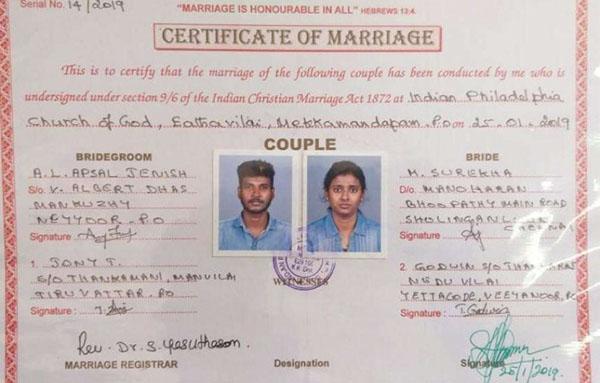 Serial No. 14/2019
"MARRIAGE IS HONOURABLE IN ALL" HEBREWS 13:4.
CERTIFICATE OF MARRIAGE
This is to certify that the marriage of the following couple has been conducted by me who is
undersigned under section 9/6 of the Indian Christian Marriage Act 1872 at Indian Philadelphia
Church of God, Eathavilai, Mekkamandapam.P.O on 25.01.2019
COUPLE
BRIDEGROOM
A.L. APSAL JENISH
S/o. V. ALBERT DHAS
MANKUZHY
NEYYOOR.P.O
Signature :
BRIDE
M. SUREKHA
D/o. MANOHARAN
BHOOPATHY MAIN ROAD
CHENNAI
Signature :
WITNESSES
1. JONY T.
S/O THANKAMANI, MANVILAI
TIRUVATTAR.PO
Signature :
2. GODWIN S/O
NEDUVILAI
VEEYANOOR, PO
Signature : T. Godwin
Rev. Dr. S. Yasuthason.
MARRIAGE REGISTRAR
Designation
Signature
25/1/2019.